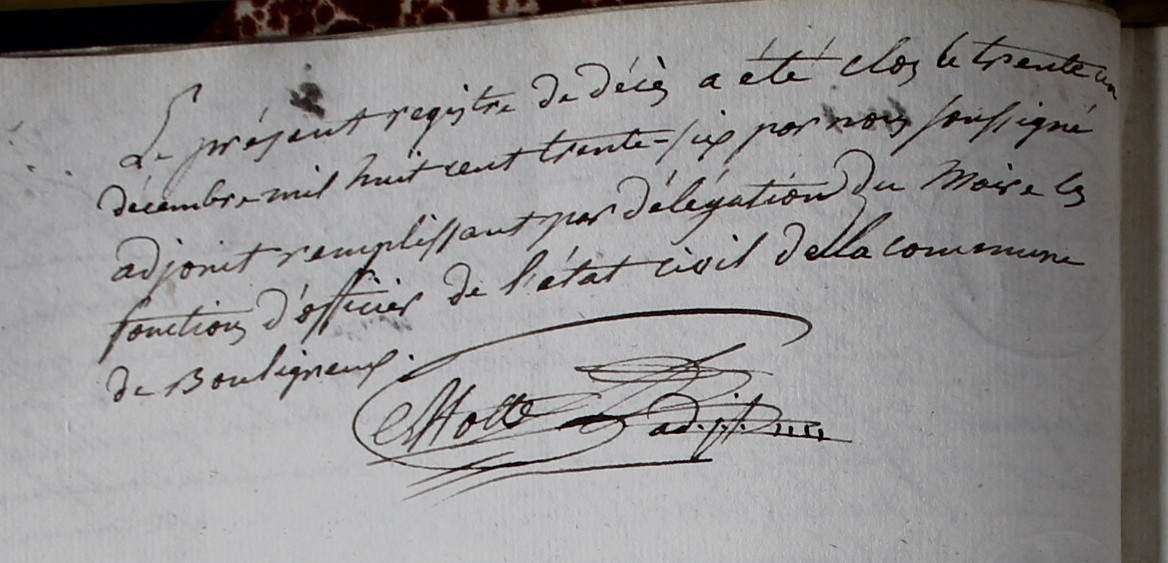 Le présent registre de décès a été clos le trente un
décembre mil huit cent trente-six par nous soussigné
adjoint remplissant par délégation du Maire les
fonctions d'officier de l'état civil de la commune
de Bouligneux.
adjt